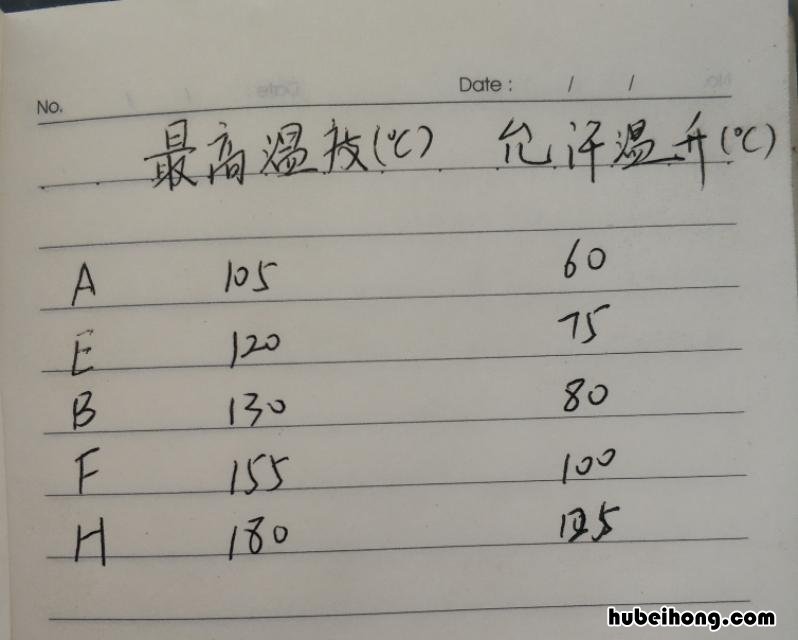 No. Date : / /
最高温度(℃) 允许温升(℃)
A 105 60
E 120 75
B 130 80
F 155 100
H 180 125
hubeihong.com